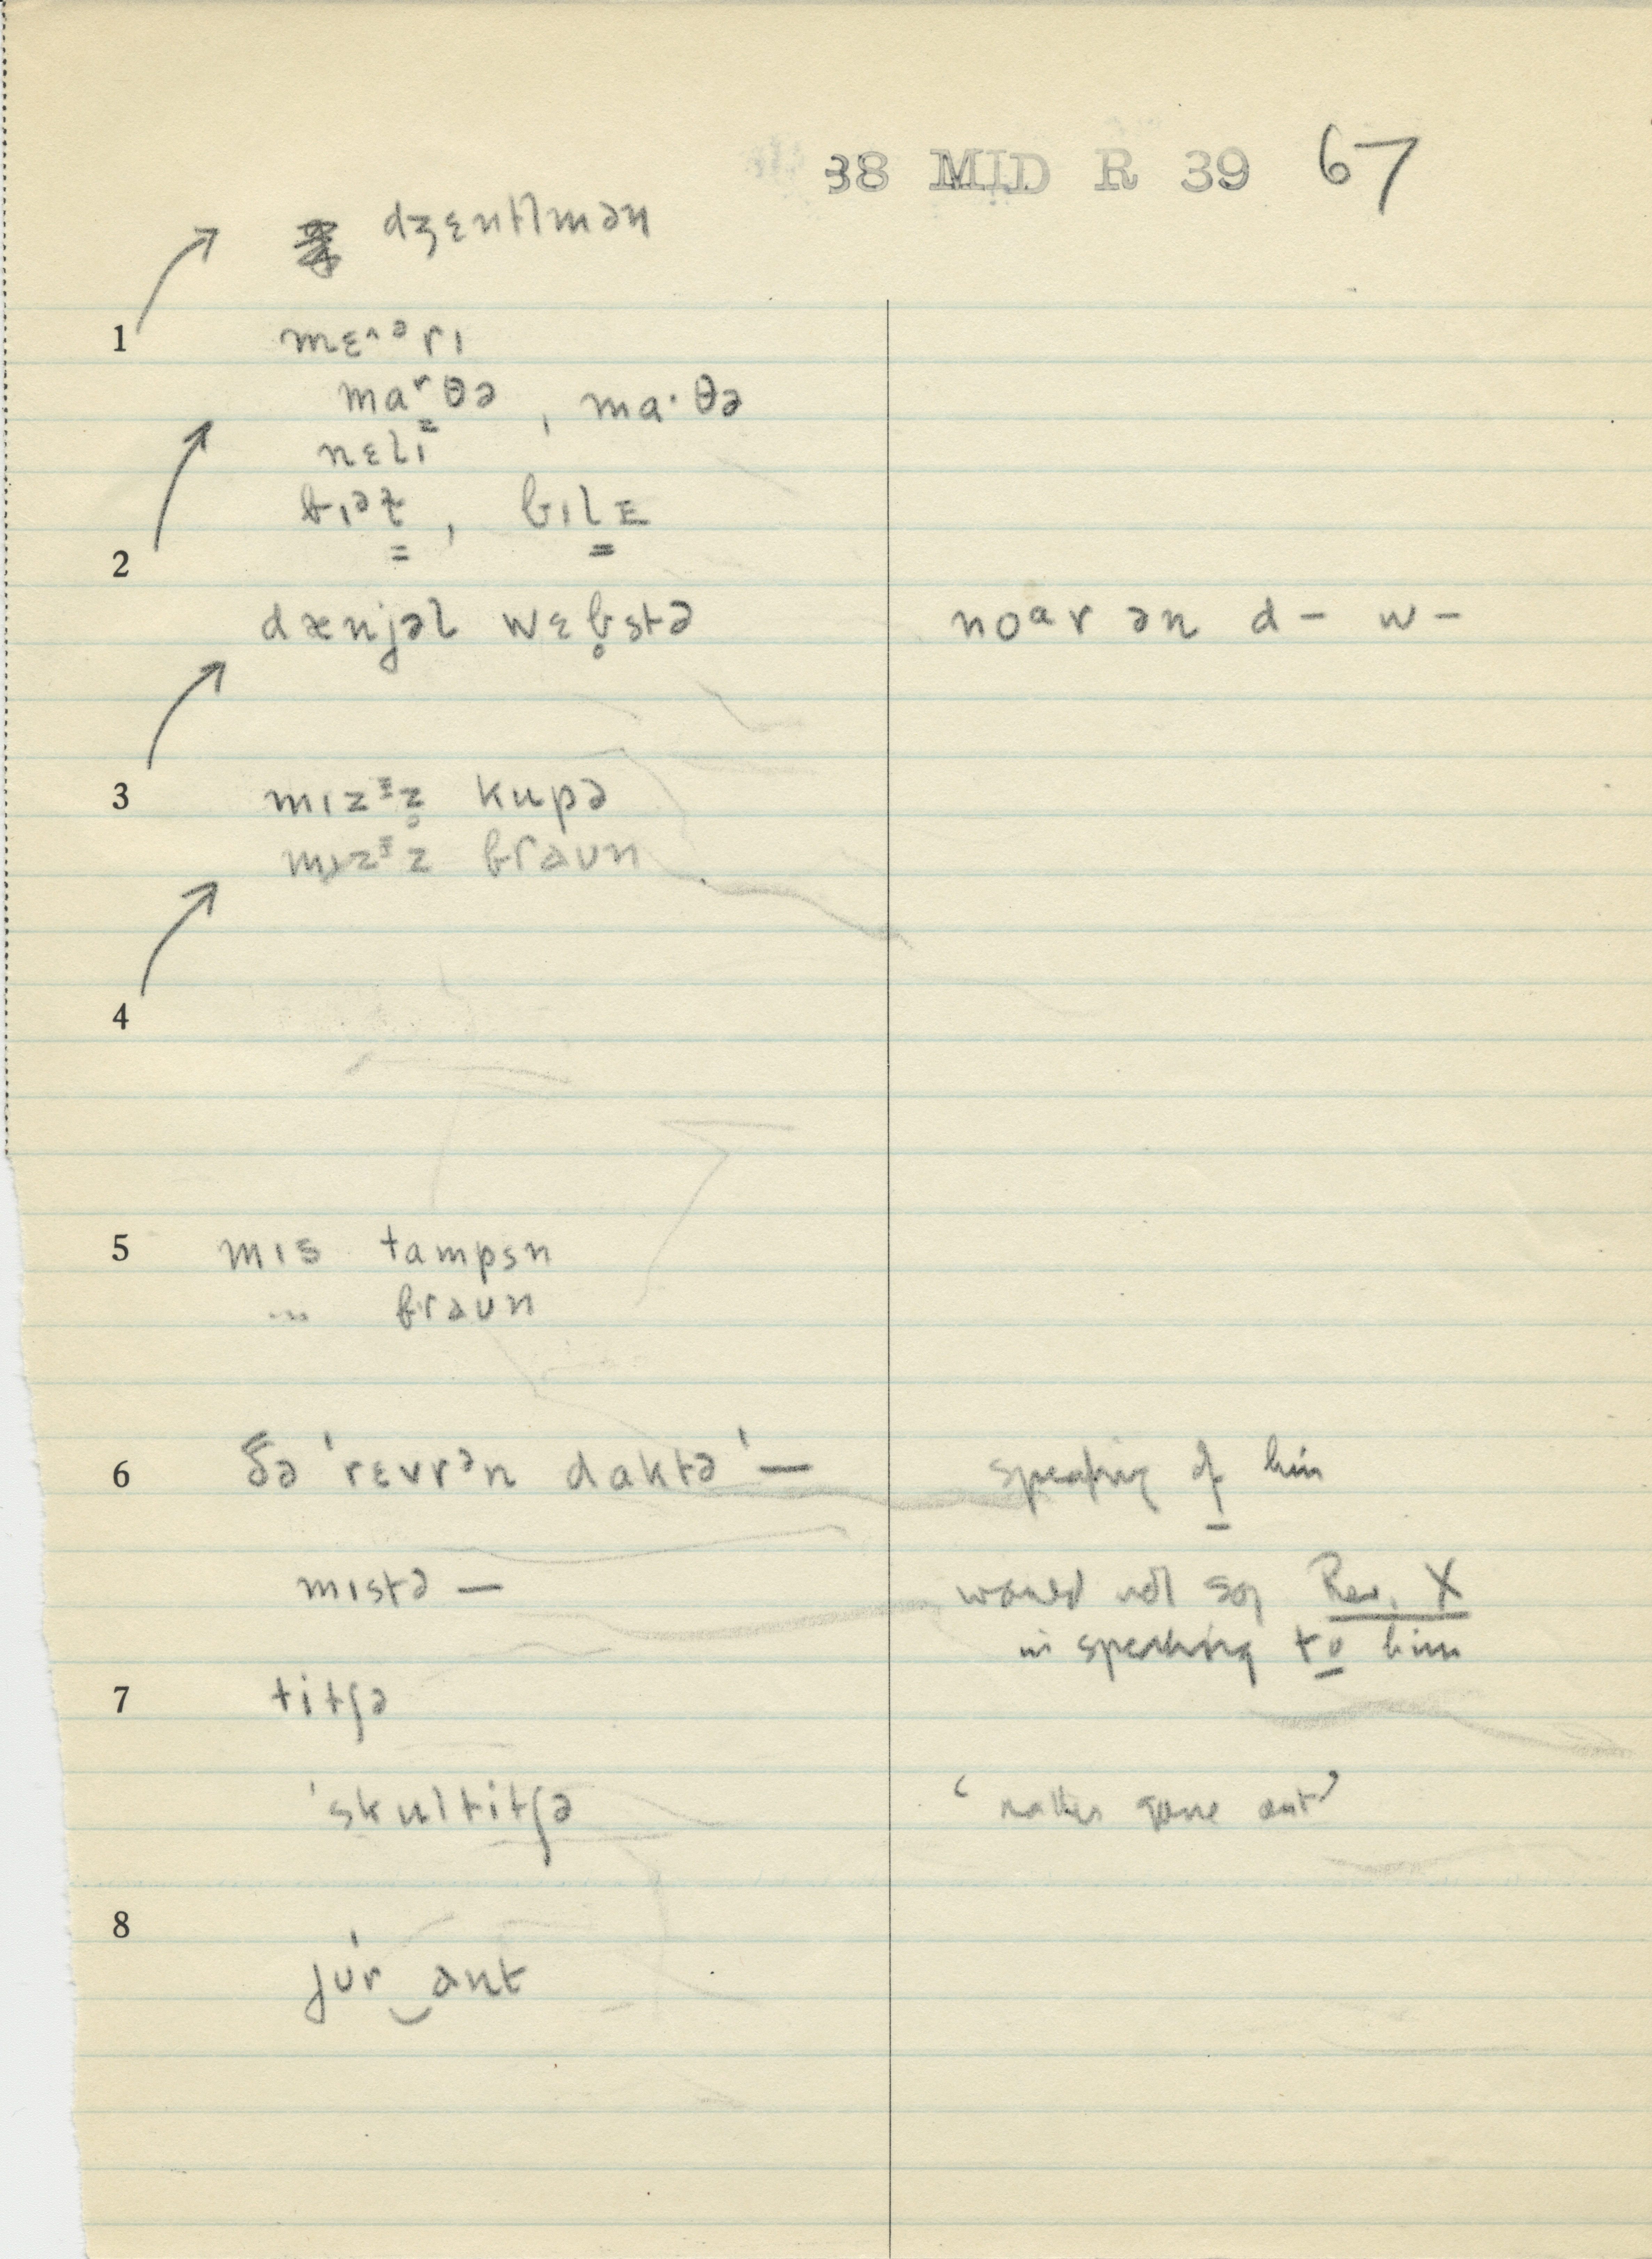 38 MID R 39 67
dʒɛntlmən
1 mɛ˄ᵊrɪ
maʳθə , ma·θə
nɛlɪ
bɪlɛ
2
dænjəl wɛb̥stə noᵃr ən d– w–
3 mɪzᵻz̥ kupə
mɪzᵻz braʊn
4
5 mɪs tampsn
〃 braʊn
6 ðə ˈrɛvrᵊn daktə ˈ— speaking of him
mɪstə — would not say Rev. X
in speaking to him
7 titʃə
ˈskultitʃə ‘rather gone out’
8
jʊˈr‿ant